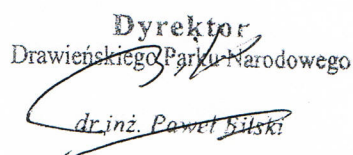 Dyrektor
Drawieńskiego Parku Narodowego
dr inż. Paweł Bilski